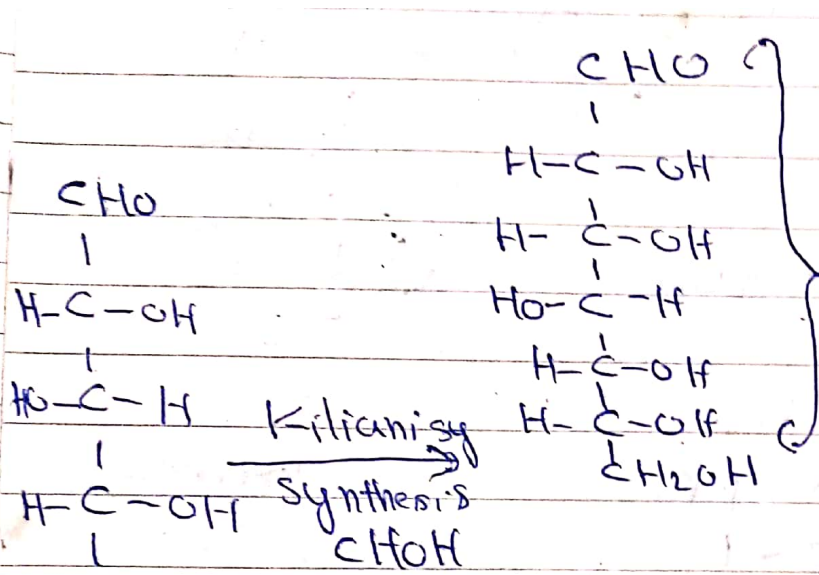 CHO
|
H-C-OH
|
HO-C-H
|
H-C-OH
|
Kilianisy
synthesis
CHOH
CHO
|
H-C-OH
|
H-C-OH
|
HO-C-H
|
H-C-OH
|
H-C-OH
|
CH2OH